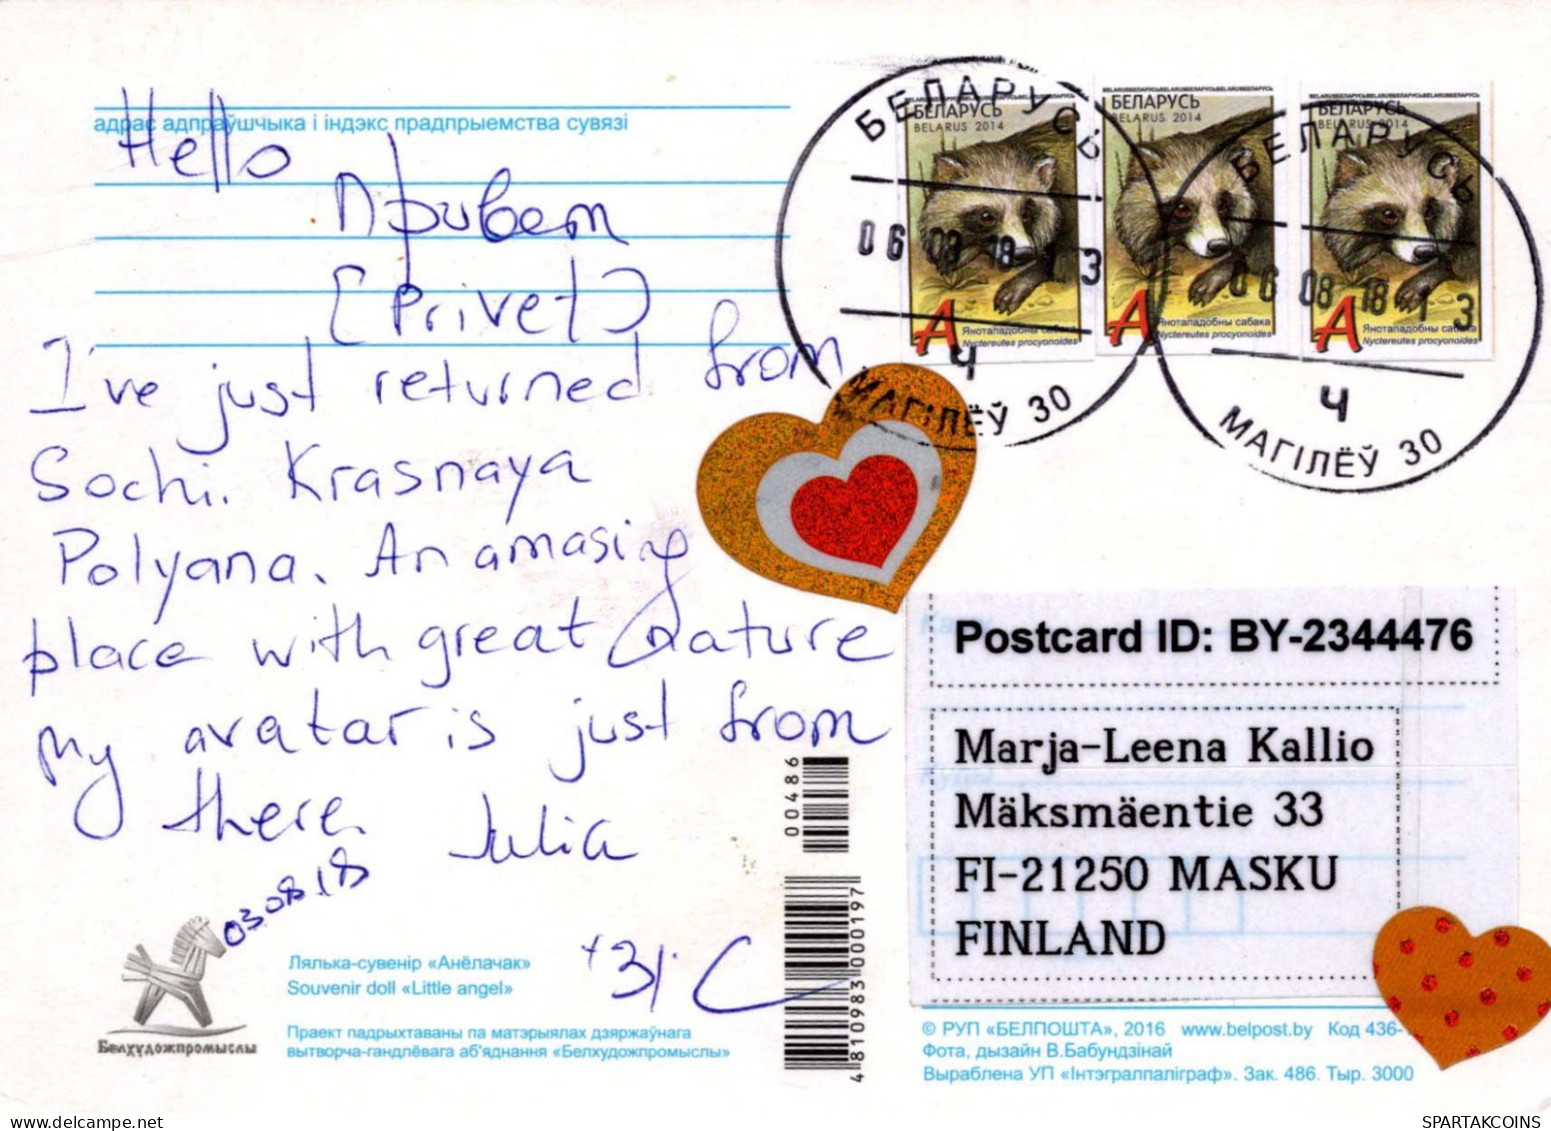 адрас адпраўшчыка і індэкс прадпрыемства сувязі
Hello
Привет
[Privet]
I've just returned from
Sochi. Krasnaya
Polyana. An amasing
place with great nature
my avatar is just from
there. Julia
03.08.18
+31°C
Белхудожпромыслы
Лялька-сувенір «Анёлачак»
Souvenir doll «Little angel»
Праект падрыхтаваны па матэрыялах дзяржаўнага
вытворча-гандлёвага аб'яднання «Белхудожпромыслы»
00486
4810983000197
БЕЛАРУСЬ
06 08 18 13
Ч
МАГІЛЁЎ 30
БЕЛАРУСЬ
06 08 18 13
Ч
МАГІЛЁЎ 30
БЕЛАРУСЬ
BELARUS 2014
А
Янотападобны сабака
Nyctereutes procyonoides
БЕЛАРУСЬ
BELARUS 2014
А
Янотападобны сабака
Nyctereutes procyonoides
БЕЛАРУСЬ
BELARUS 2014
А
Янотападобны сабака
Nyctereutes procyonoides
Каму
Postcard ID: BY-2344476
Куды
Marja-Leena Kallio
Mäksmäentie 33
FI-21250 MASKU
FINLAND
© РУП «БЕЛПОШТА», 2016 www.belpost.by Код 436-
Фота, дызайн В.Бабундзінай
Выраблена УП «Інтэгралпаліграф». Зак. 486. Тыр. 3000
SPARTAKCOINS